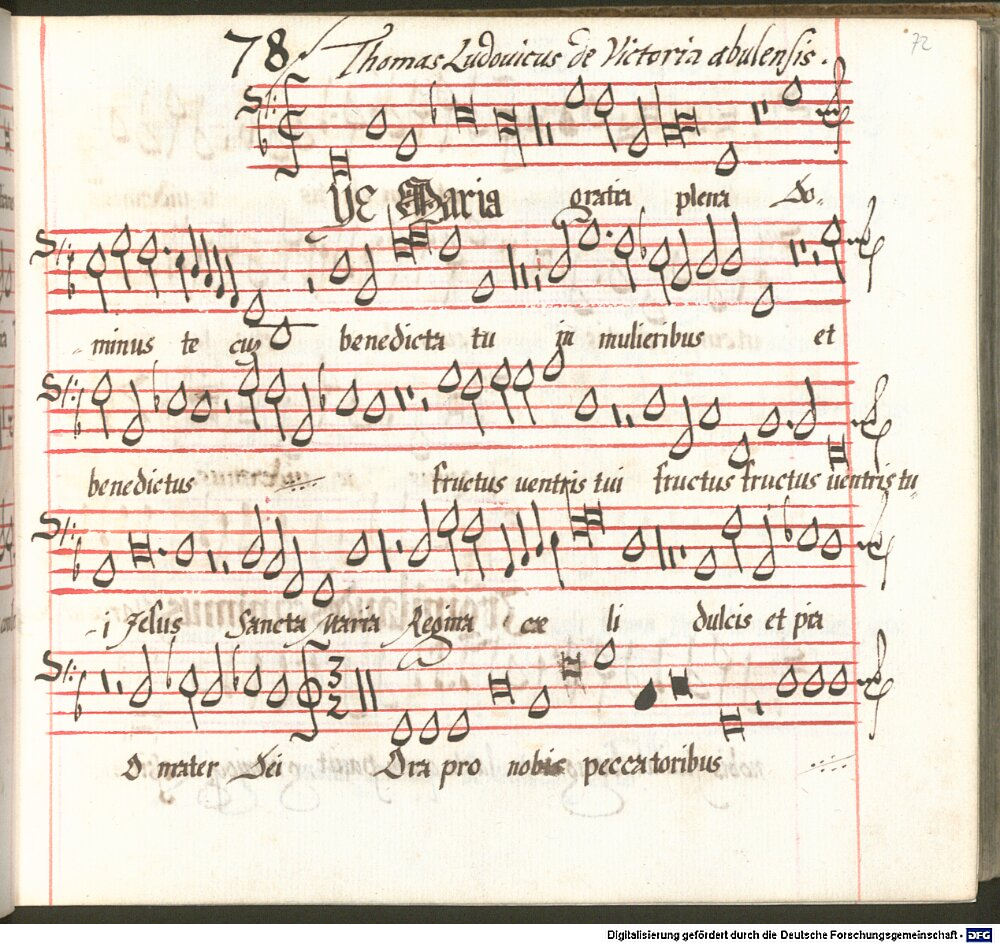 72
78 Thomas Ludovicus de Victoria abulensis.
Ave Maria gratia plena Do-
-minus te cũ benedicta tu in mulieribus et
benedictus fructus ventris tui fructus fructus ventris tu
-i Jesus Sancta Maria Regina cæ li dulcis et pia
O mater Dei Ora pro nobis peccatoribus
Digitalisierung gefördert durch die Deutsche Forschungsgemeinschaft - DFG